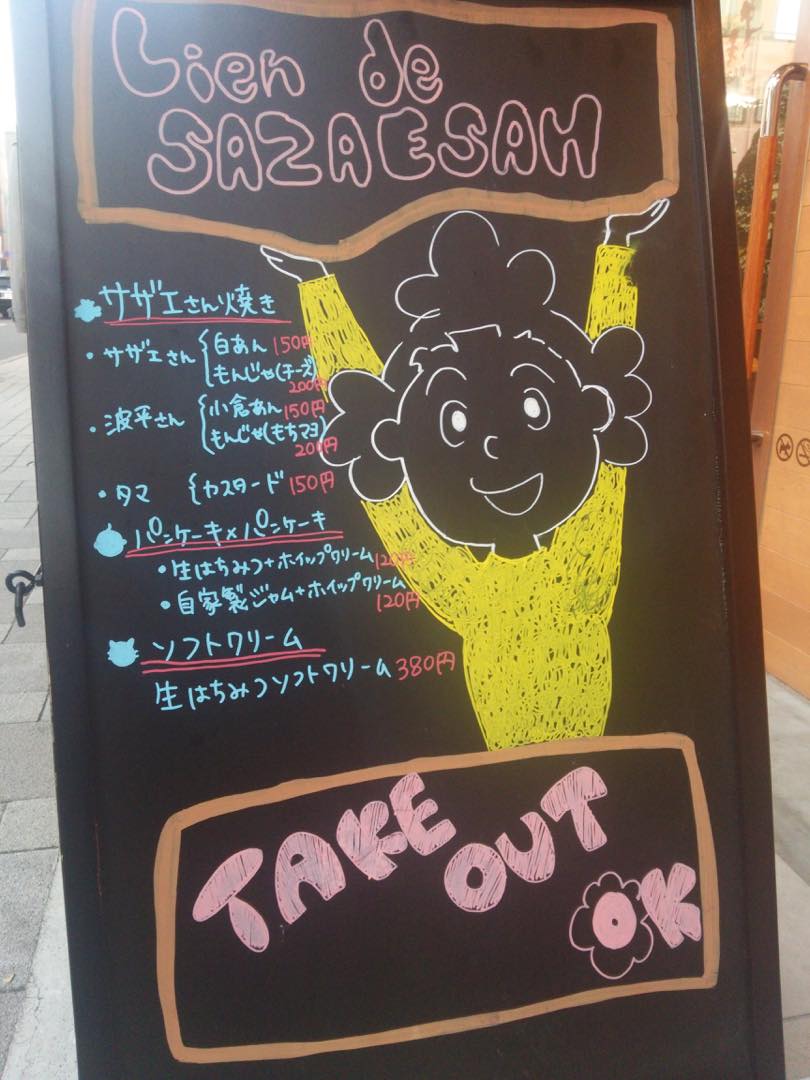 Lien de
SAZAESAN
サザエさん焼き
・サザエさん { 白あん 150円
もんじゃ(チーズ) 200円
・波平さん { 小倉あん 150円
もんじゃ(もちマヨ) 200円
・タマ { カスタード 150円
パンケーキ×パンケーキ
・生はちみつ+ホイップクリーム 120円
・自家製ジャム+ホイップクリーム
120円
ソフトクリーム
生はちみつソフトクリーム 380円
TAKE
OUT
OK